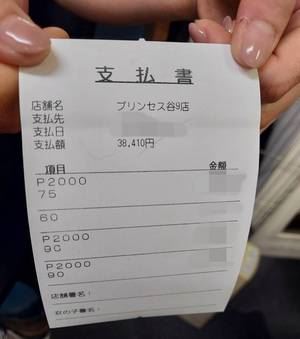 支払書
店舗名 プリンセス谷9店
支払先
支払日
支払額 38,410円
項目 金額
P2000
75
60
P2000
90
P2000
90
店舗署名:
女の子署名: